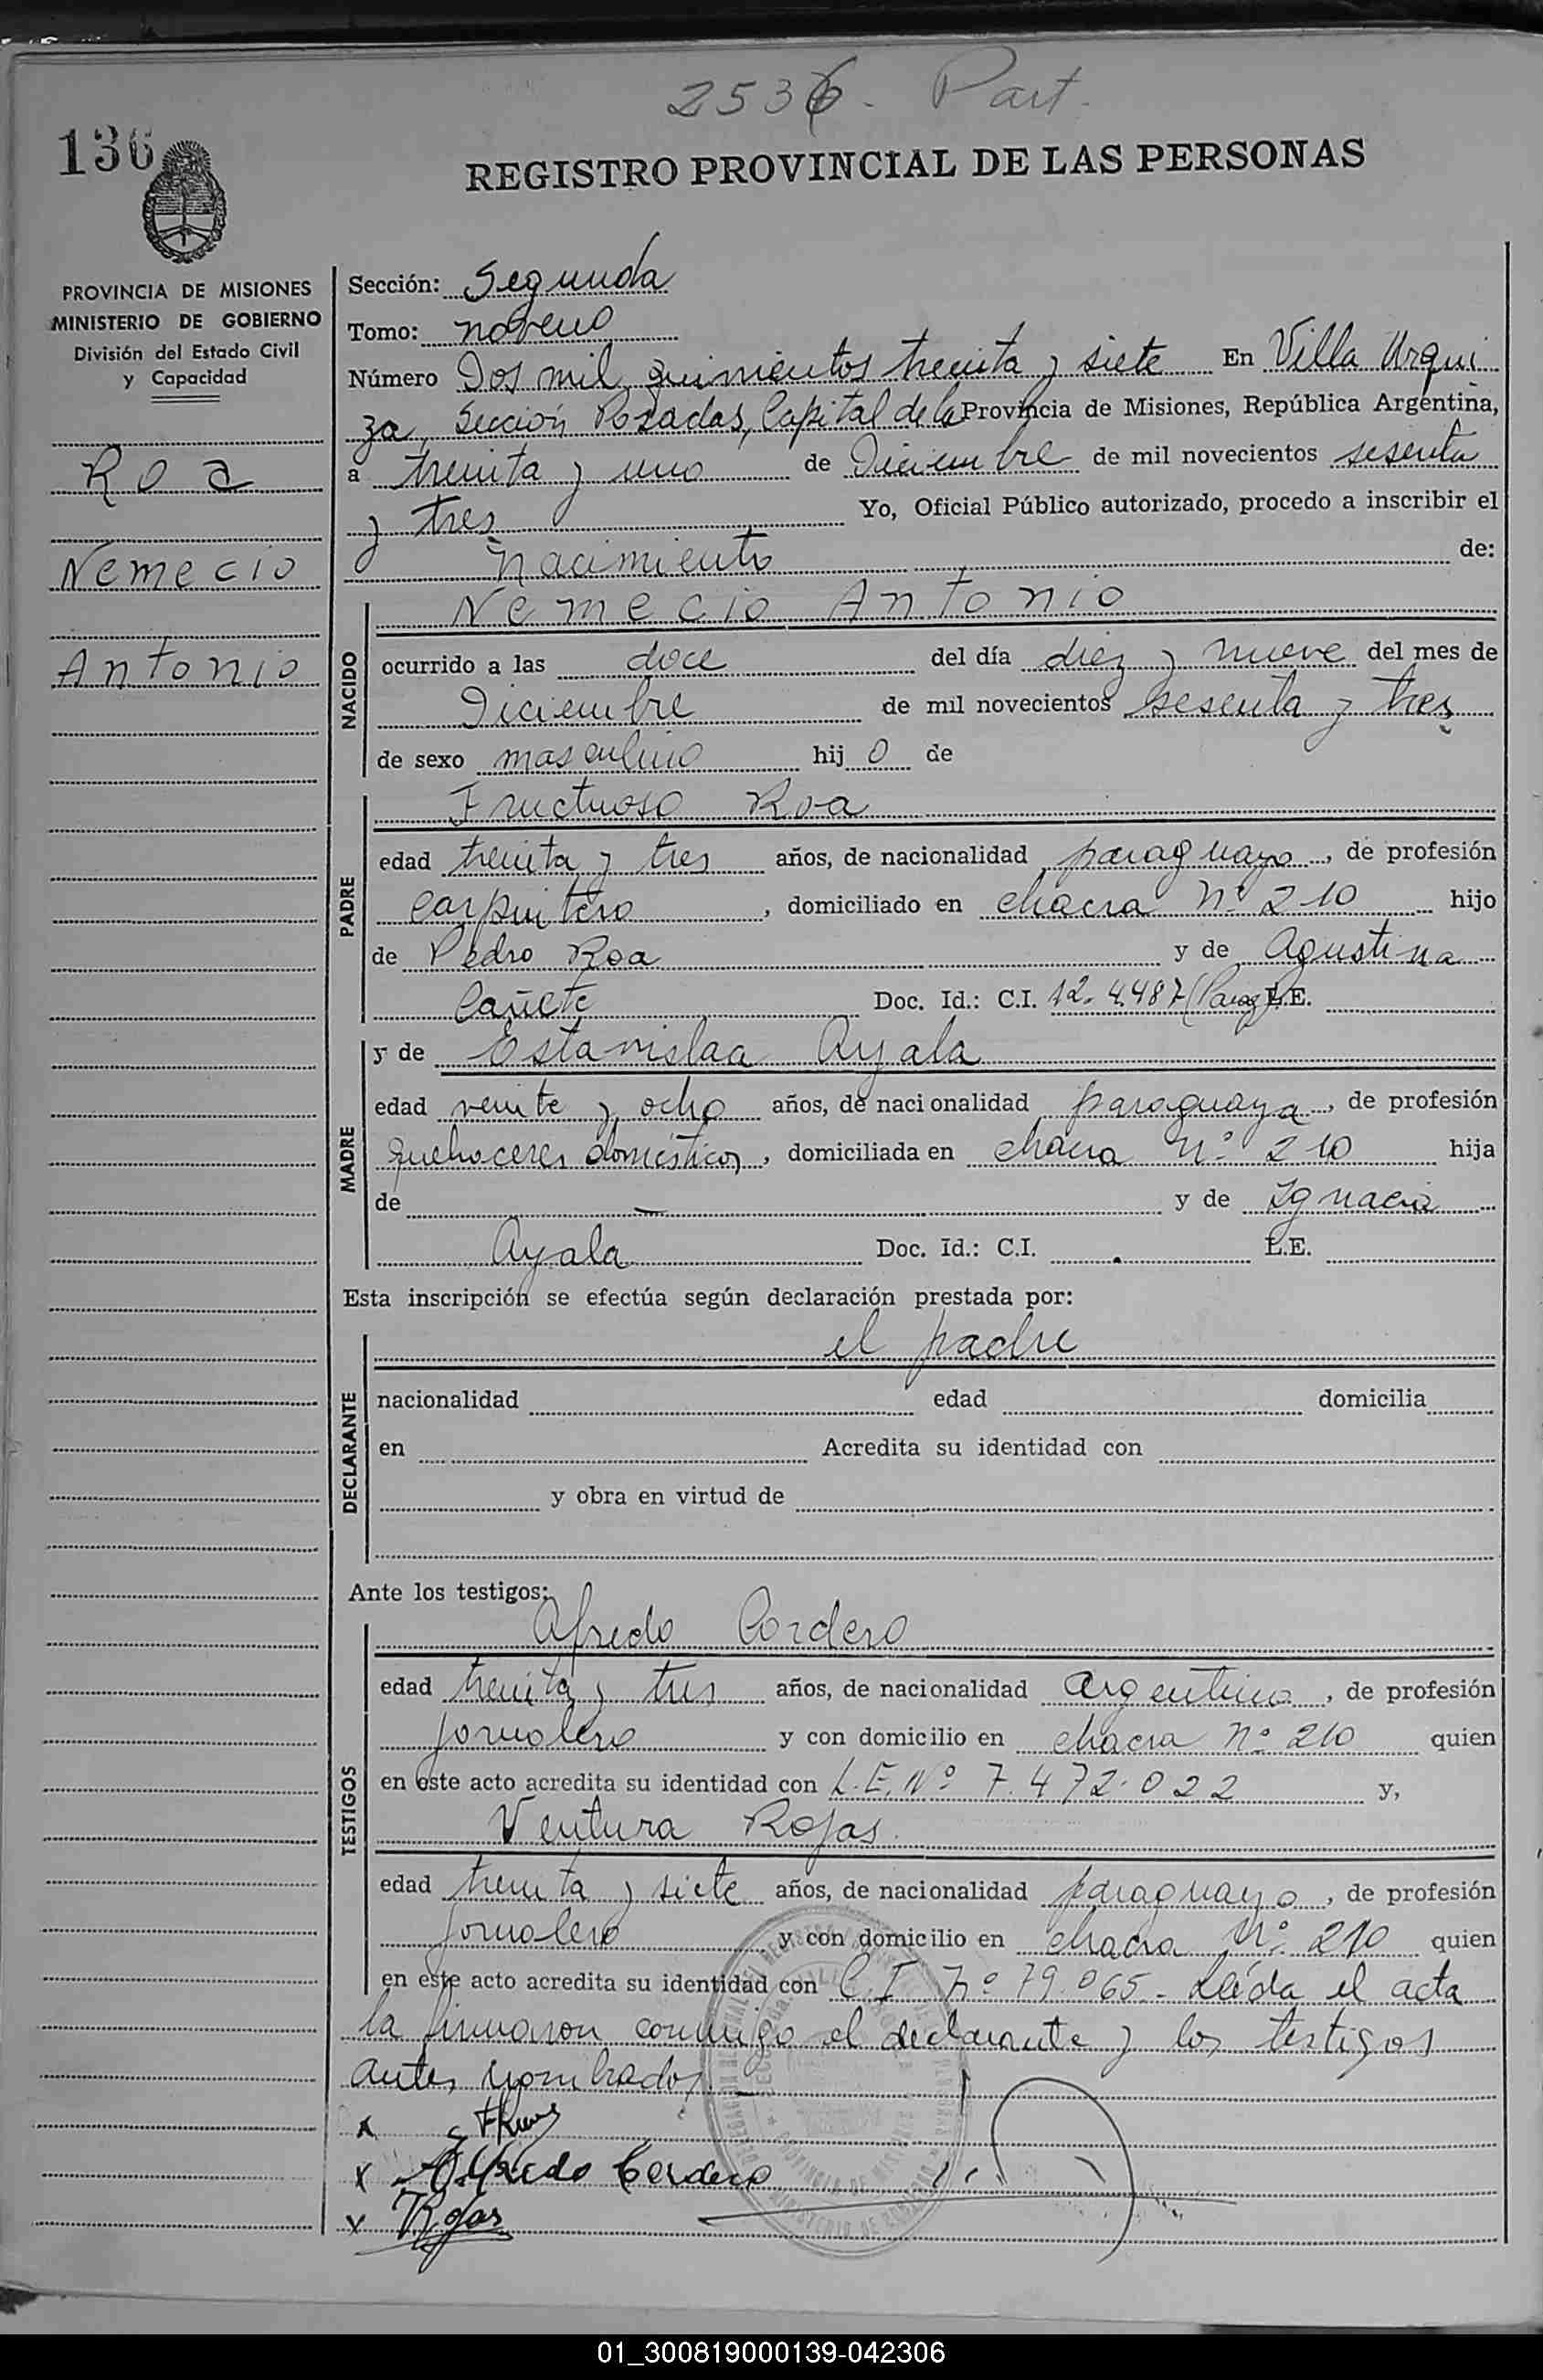 2536. Part.
136
REGISTRO PROVINCIAL DE LAS PERSONAS
PROVINCIA DE MISIONES
MINISTERIO DE GOBIERNO
División del Estado Civil
y Capacidad
Roa
Nemecio
Antonio
Sección: Segunda
Tomo: noveno
Número Dos mil quinientos treinta y siete En Villa Urqui
za, Sección Posadas, Capital de la Provincia de Misiones, República Argentina,
a treinta y uno de Diciembre de mil novecientos sesenta
y tres Yo, Oficial Público autorizado, procedo a inscribir el
nacimiento de:
NACIDO
Nemecio Antonio
ocurrido a las doce del día diez y nueve del mes de
Diciembre de mil novecientos sesenta y tres
de sexo masculino hijo de
PADRE
Fructuoso Roa
edad treinta y tres años, de nacionalidad paraguayo, de profesión
carpintero, domiciliado en chacra Nº 210 hijo
de Pedro Roa y de Agustina
Cañete Doc. Id.: C.I. 12.4487 (Parag) L.E.
MADRE
y de Estanislaa Ayala
edad veinte y ocho años, de nacionalidad paraguaya, de profesión
quehaceres domésticos, domiciliada en chacra Nº 210 hija
de — y de Ignacia
Ayala Doc. Id.: C.I. L.E.
Esta inscripción se efectúa según declaración prestada por:
DECLARANTE
el padre
nacionalidad edad domicilia
en Acredita su identidad con
y obra en virtud de
Ante los testigos:
TESTIGOS
Alfredo Cordero
edad treinta y tres años, de nacionalidad argentino, de profesión
jornalero y con domicilio en chacra Nº 210 quien
en este acto acredita su identidad con L.E. Nº 7.472.022 y,
Ventura Rojas
edad treinta y siete años, de nacionalidad paraguayo, de profesión
jornalero y con domicilio en chacra Nº 210 quien
en este acto acredita su identidad con C.I Nº 79.065. Leída el acta
la firmaron conmigo el declarante y los testigos
antes nombrados. —
x
x Alfredo Cordero
x Rojas
01_300819000139-042306